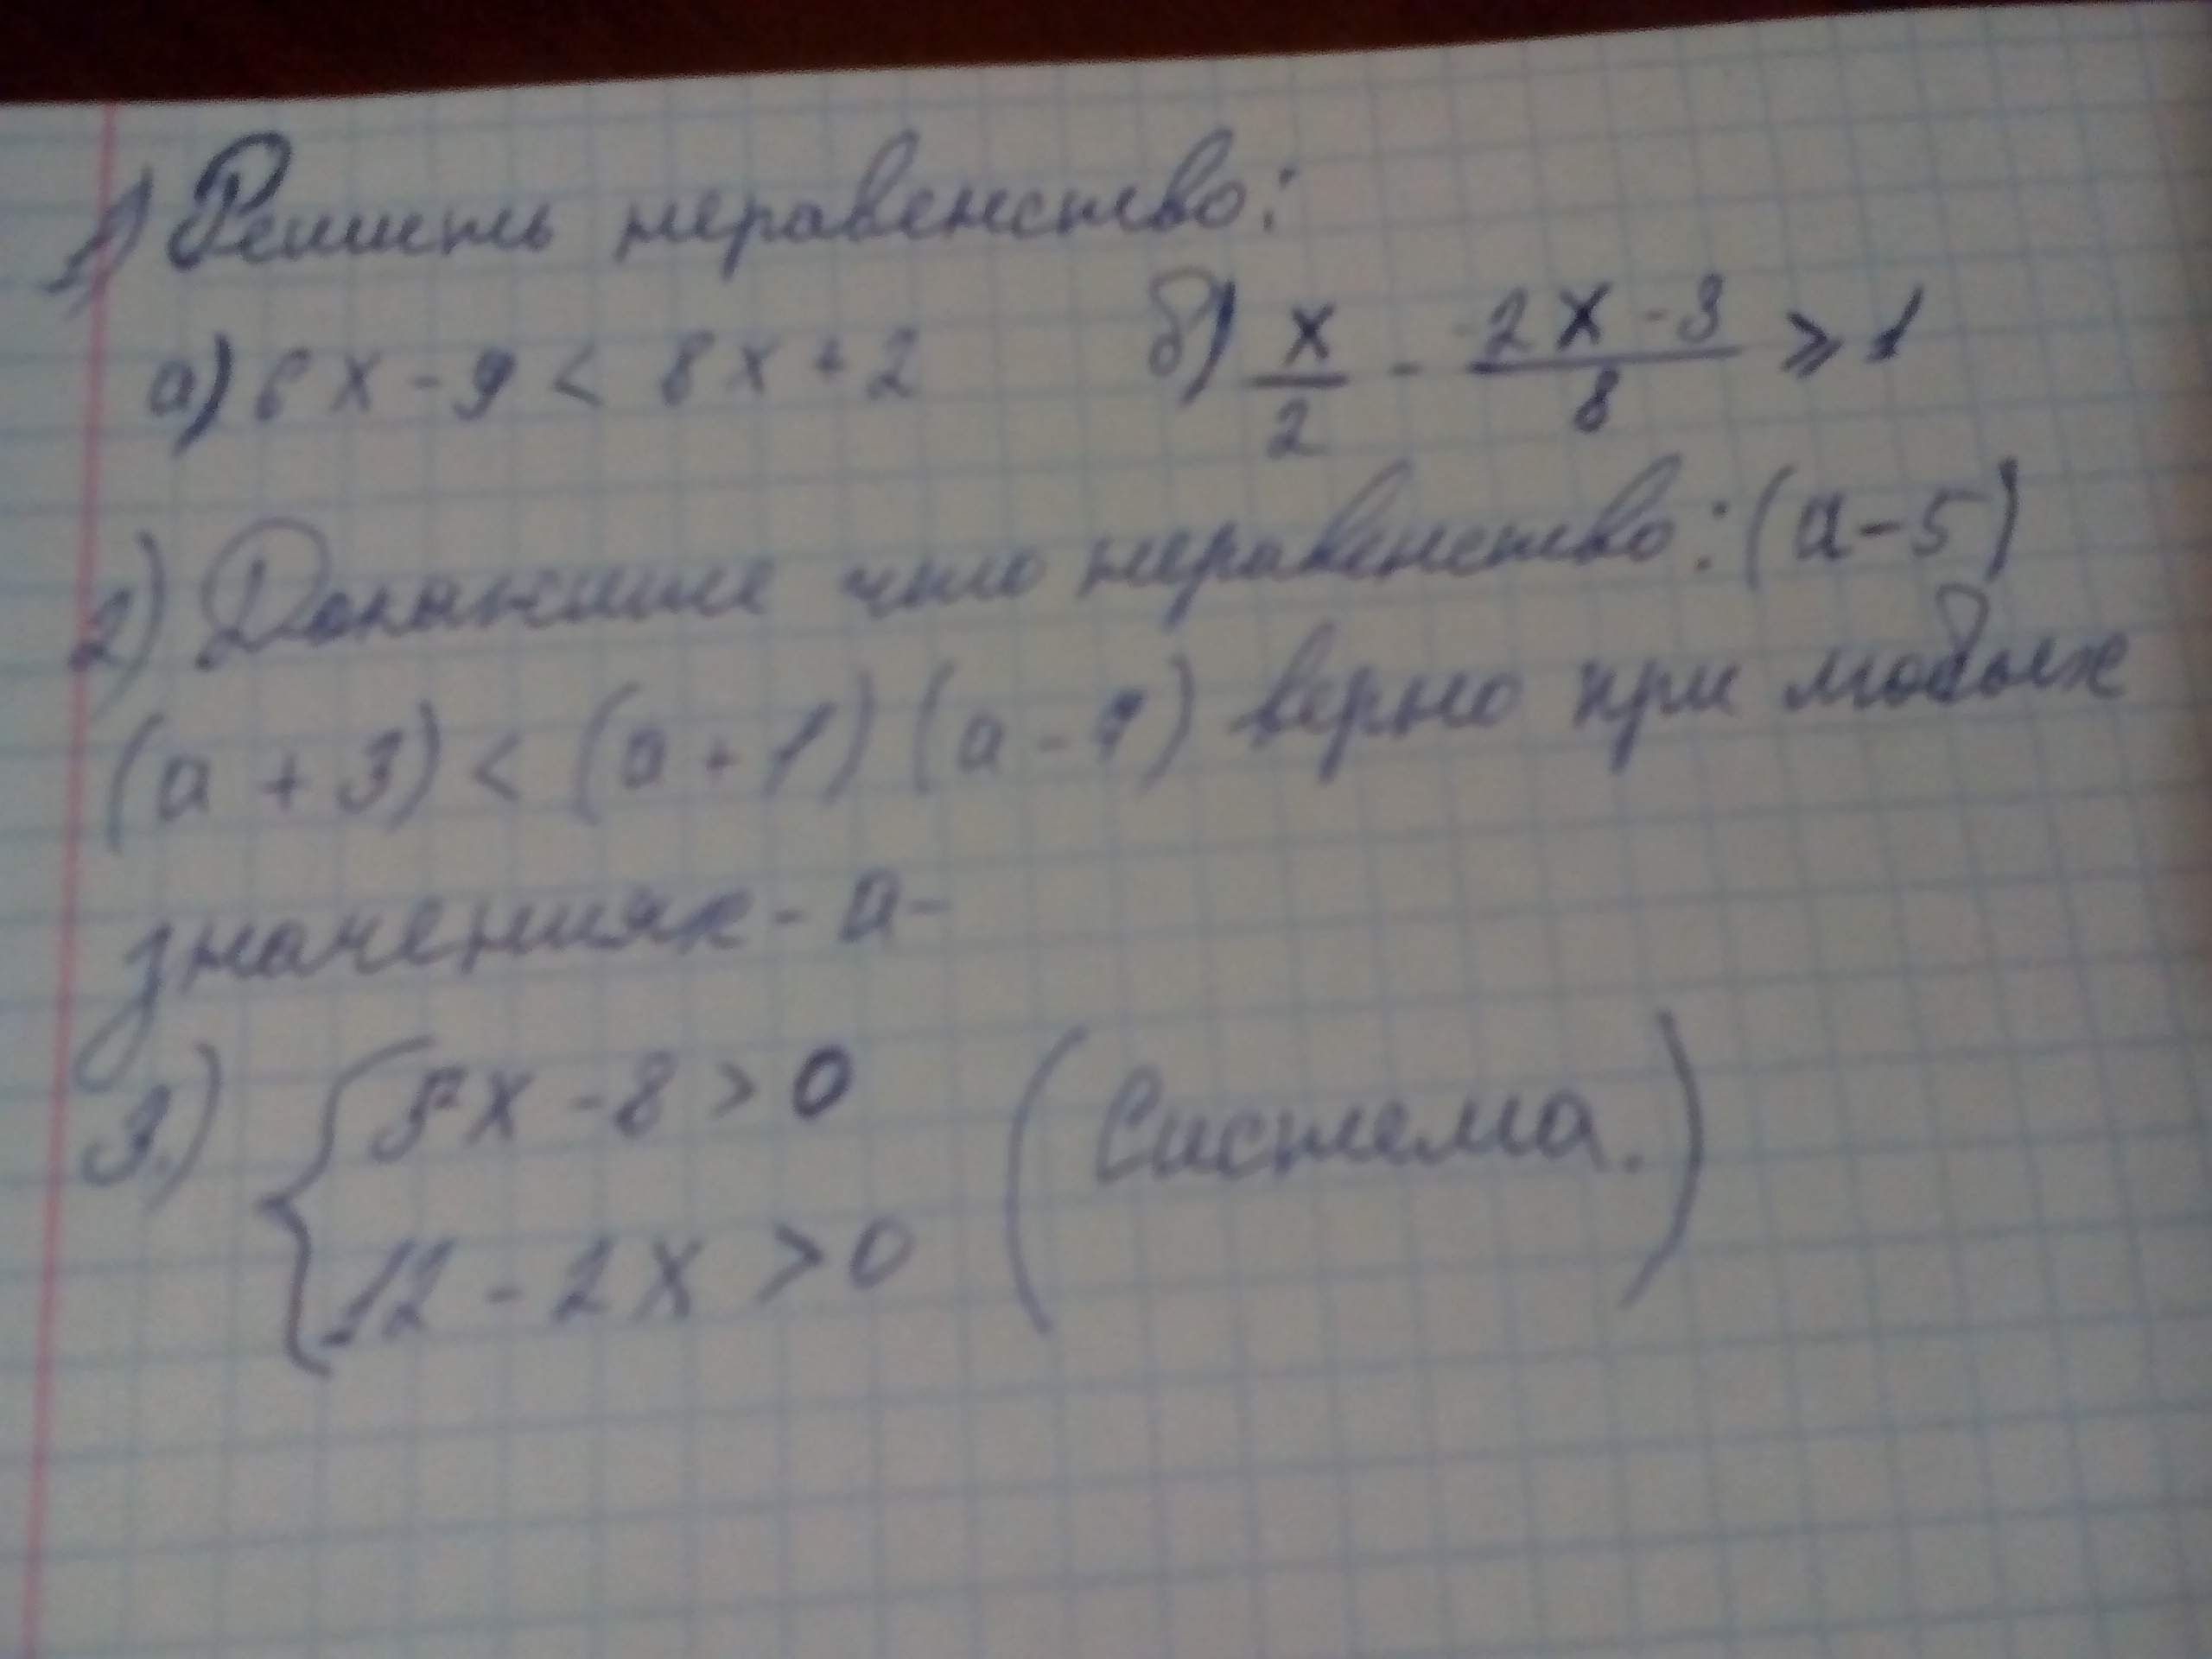 1) Решить неравенство:
а) 6x - 9 < 8x + 2 б) x/2 - (2x - 3)/8 ⩾ 1
2) Докажите что неравенство: (a - 5)
(a + 3) < (a + 1) (a - 7) верно при любых
значениях - a -
3.) { 5x - 8 > 0 (Система.)
12 - 2x > 0